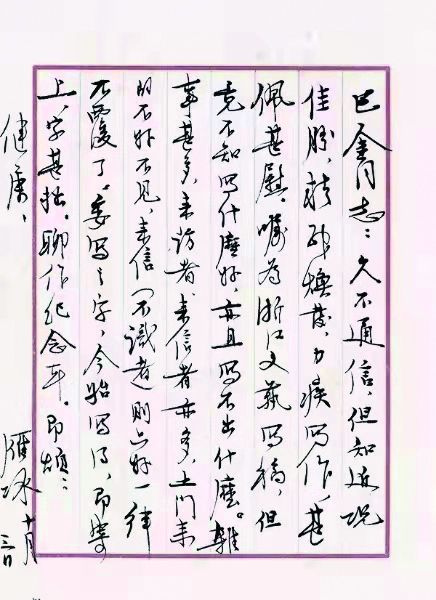 巴金同志：久不通信，但知近况
佳勝，精神焕發，力疾写作，甚
佩甚慰。嘱为浙江文藝写稿，但
竟不知写什麽好，亦且写不出什麽。雜
事甚多，来訪者、来信者亦多，上门来
的不好不见，来信（不識者）则只好一律
不覆了。委写之字，今始写得，即寄
上，字甚拙。聊作纪念耳。即頌：
健康、
雁冰 十月
三日